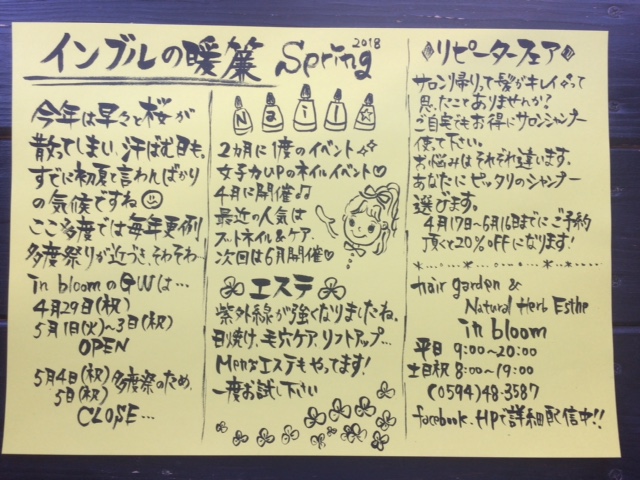 インブルの暖簾 Spring 2018
今年は早々と桜が
散ってしまい、汗ばむ日も。
すでに初夏と言わんばかり
の気候ですね
ここ多度では毎年恒例
多度祭りが近づき、そわそわ〜
in bloomのGWは…
4月29日(祝)
5月1日(火)〜3日(祝)
OPEN
5月4日(祝)多度祭のため、
5日(祝)
CLOSE…
Nail☆
2カ月に1度のイベント
女子力UPのネイルイベント♡
4月に開催♫
最近の人気は
フットネイル&ケア。
次回は6月開催♡
エステ
紫外線が強くなりましたね。
日焼け、毛穴ケア、リフトアップ…
Men'sエステもやってます!
一度お試し下さい
リピーターフェア
サロン帰りって髪がキレイって
思ったことありませんか?
ご自宅でもお得にサロンシャンプー
使って下さい。
お悩みはそれぞれ違います。
あなたにピッタリのシャンプー
選びます。
4月17日〜6月16日までにご予約
頂くと20%OFFになります!
hair garden &
Natural Herb Esthe
in bloom
平日 9:00〜20:00
土日祝 8:00〜19:00
(0594)48-3587
facebook、HPで詳細配信中!!